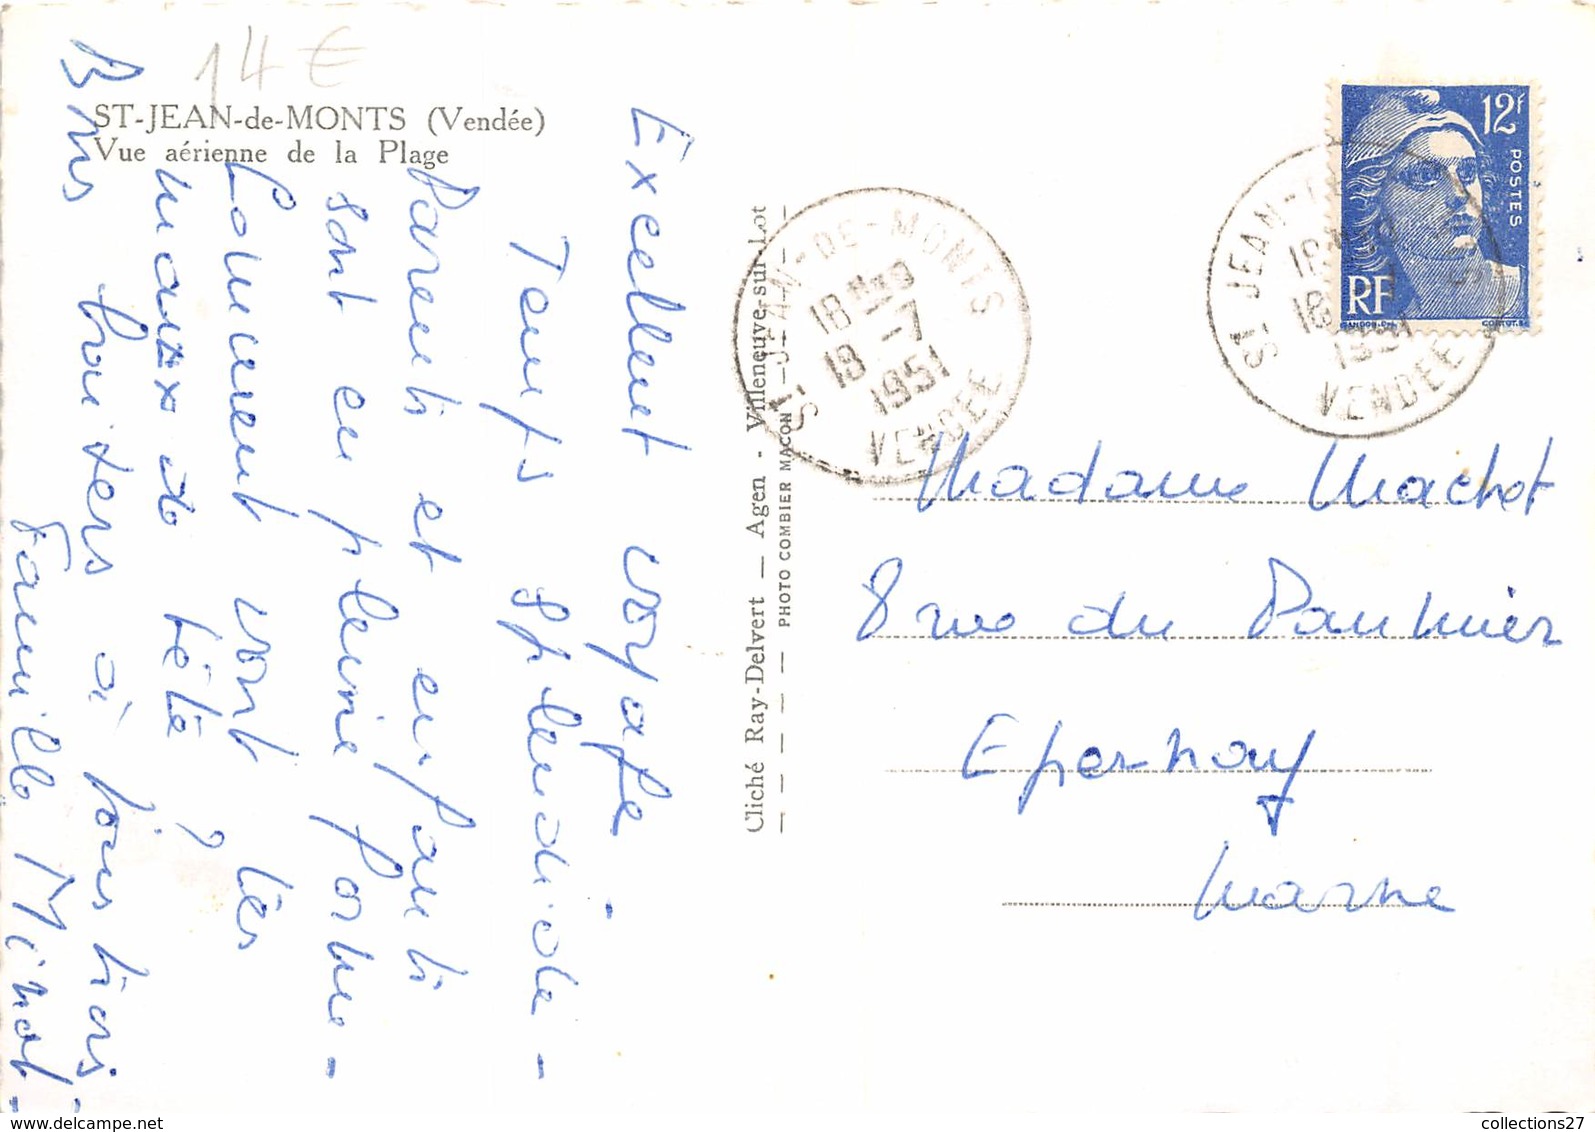 14€
ST-JEAN-de-MONTS (Vendée)
Vue aérienne de la Plage
Excellent voyage -
Temps splendide -
Parents et enfants
sont en pleine forme -
Comment vont tes
maux de tête ?
Bons baisers à tous trois -
Famille Minot -
Cliché Ray-Delvert — Agen - Villeneuve-sur-Lot
PHOTO COMBIER MACON
ST JEAN-DE-MONTS
18 H30
18 -7
1951
VENDEE
12F
POSTES
RF
GANDON
CORTOT
ST JEAN-DE-MONTS
18 H30
18 -7
1951
VENDEE
Madame Machet
8 rue du Paulmier
Epernay
Marne
collections27